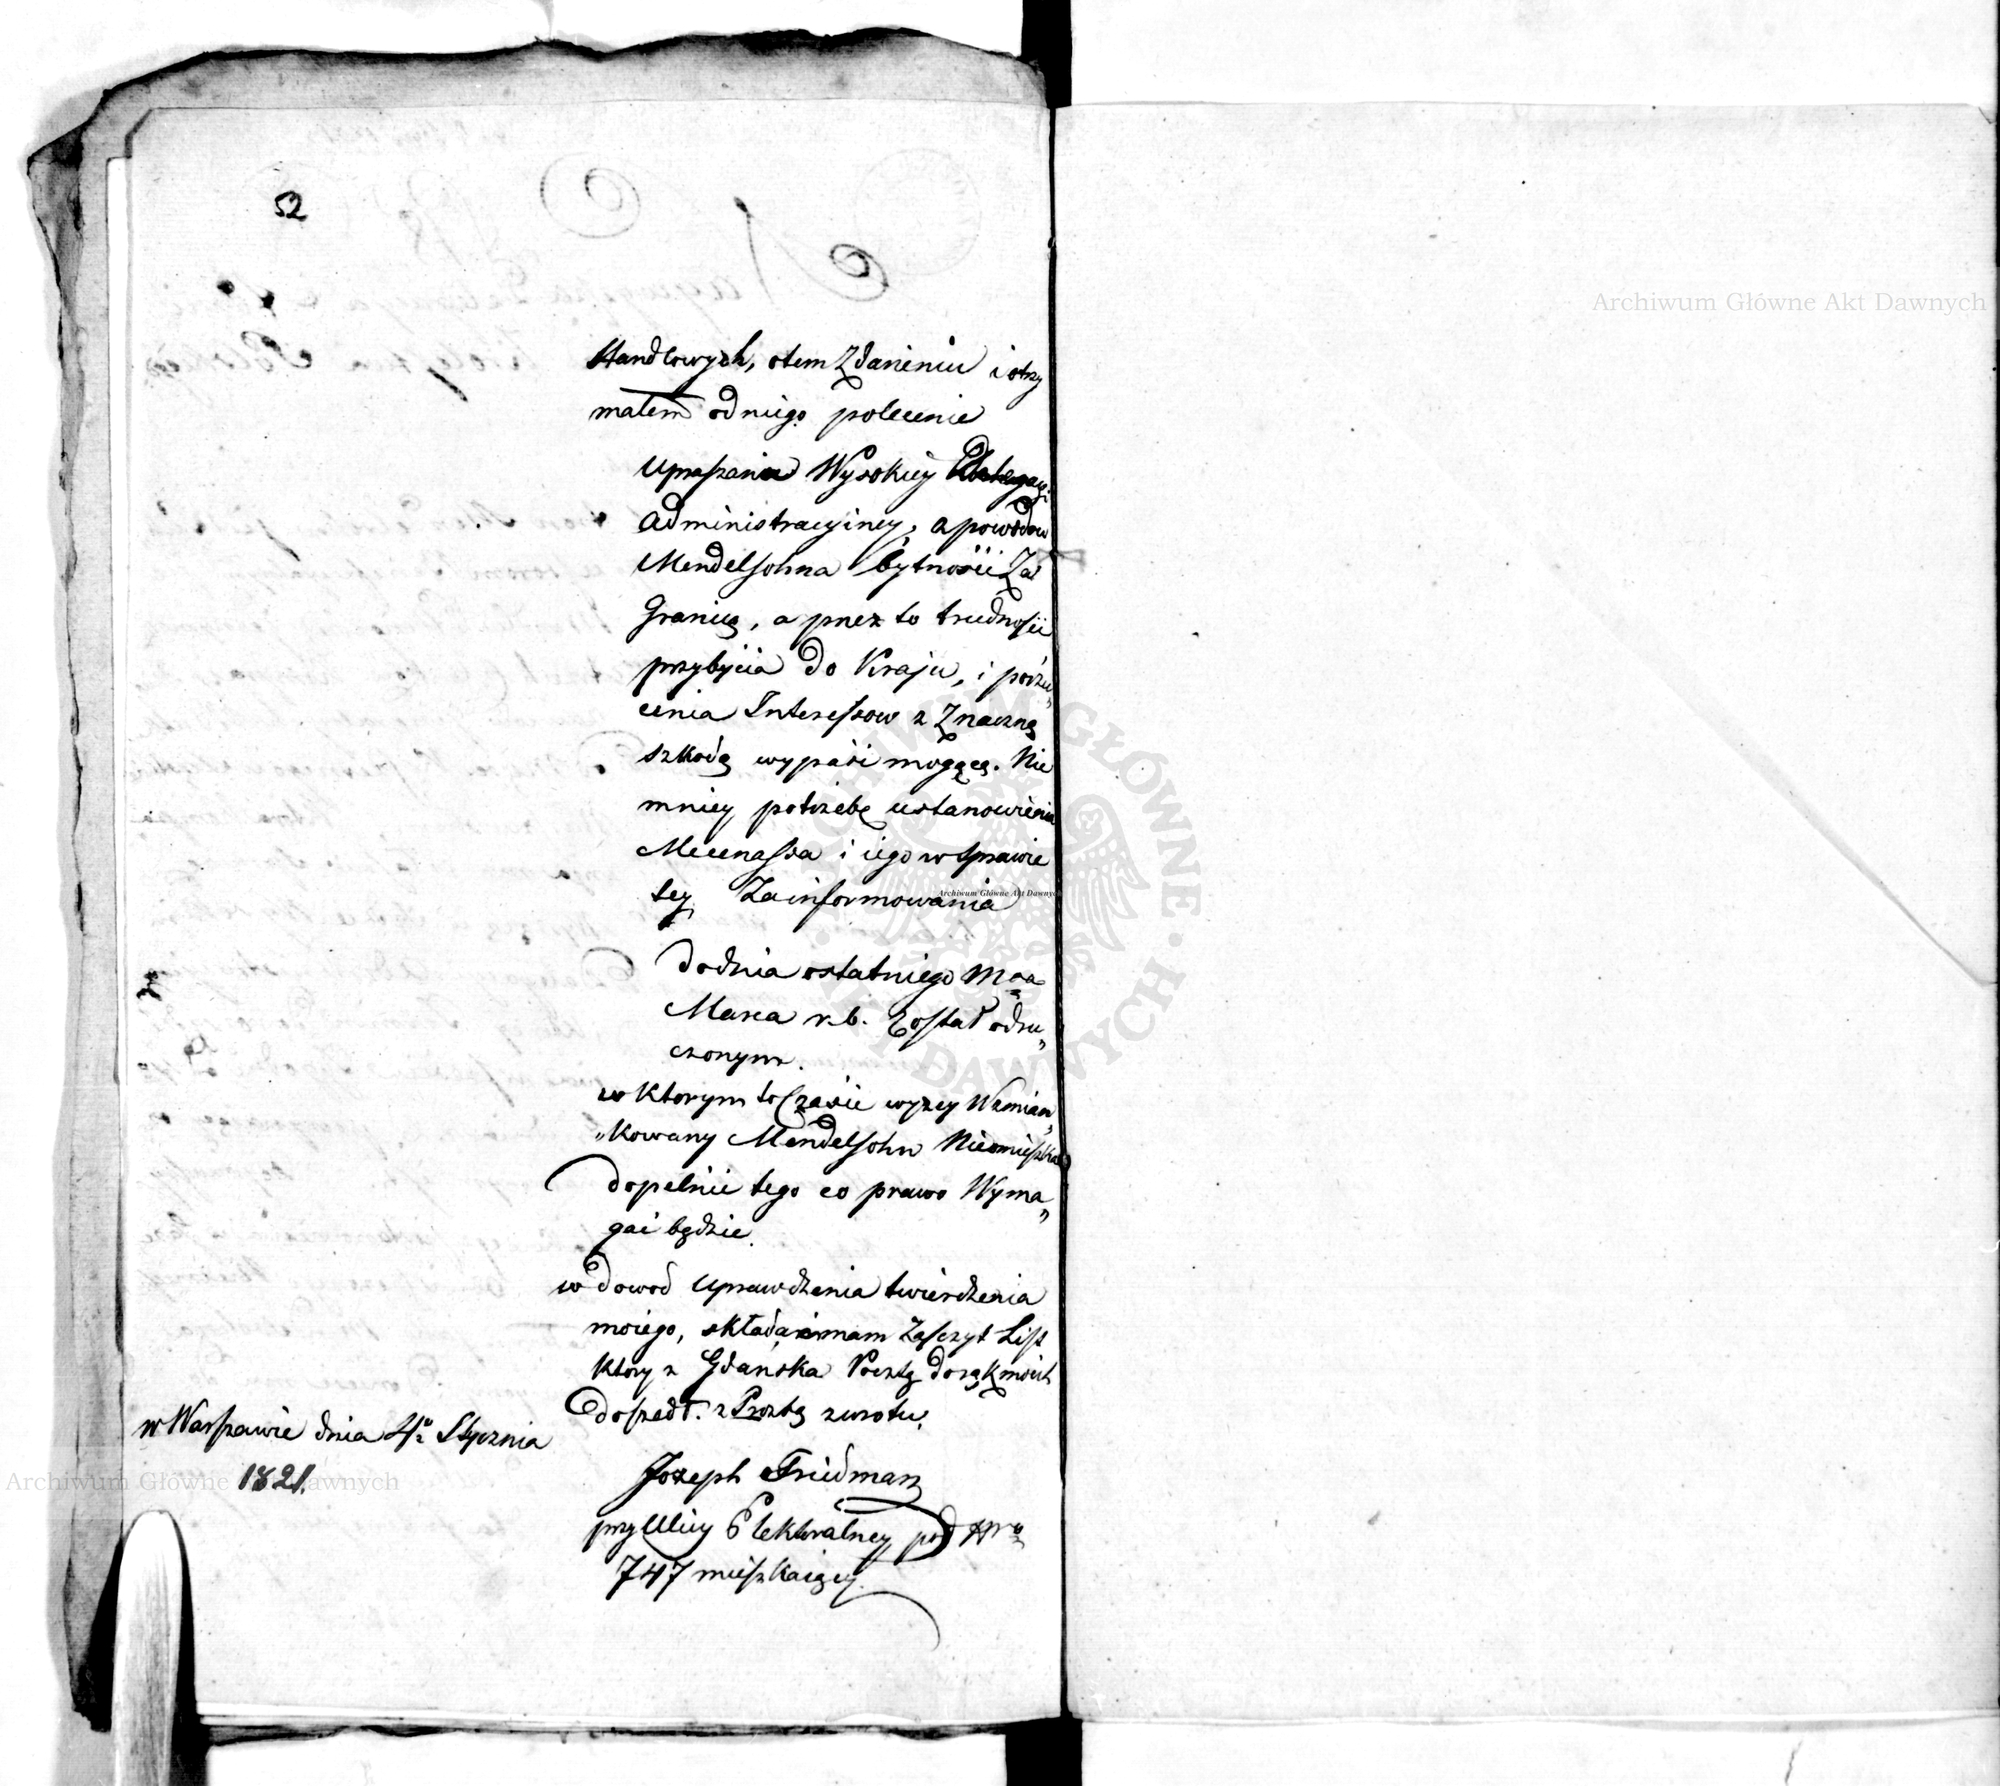 52
Handlowych, otem Zdarzeniu i otrzy
małem od niego polecenie
Upraszania Wysokiey Delegacyi
Administracyiney, a powodow
Mendelsohna bytności Za
Granicą, a przez to trudności
przybycia do Kraju, i porzu„
cenia Interessow z Znaczną
szkodą wypaść mogącą. Nie
mniey potrzebę ustanowienia
Mecenassa i iego w sprawie
tey Zainformowania
do dnia ostatniego Mca
Marca r.b. Został odro„
czonym.
w ktorym to Czasie wyzey Wzmian„
„kowany Mendelsohn Nieomieszka
dopełnić tego co prawo Wyma„
gać będzie.
w dowod Uprawdzenia twierdzenia
moiego, składać mam Zaszczyt List
ktory z Gdańska Pocztą do rąk moich
doszedł. z Prozbą zwrotu.
w Warszawie dnia 4o Stycznia
1821.
Jozeph Friedman
przy Ulicy Elektoralney pod Nro
747 mieszkaiący.
Archiwum Główne Akt Dawnych
Archiwum Główne Akt Dawnych
Archiwum Główne Akt Dawnych
ARCHIWUM GŁÓWNE AKT DAWNYCH